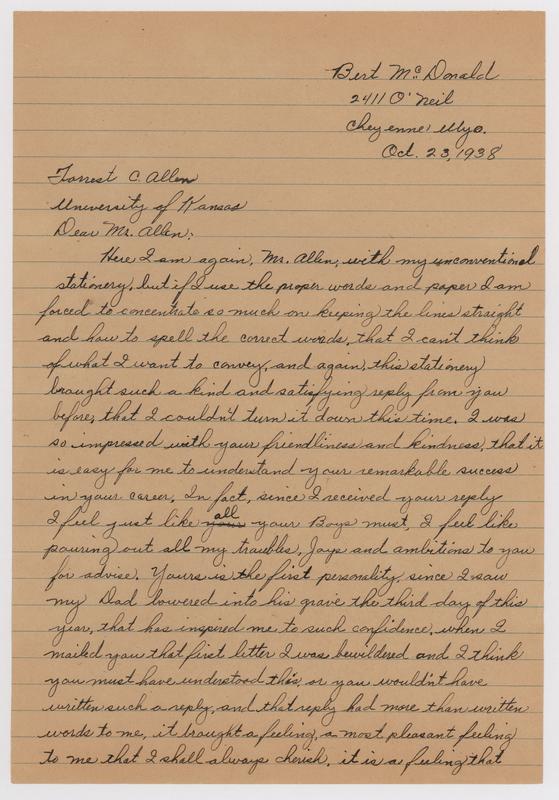 Bert McDonald
2411 O'Neil
Cheyenne, Wyo.
Oct. 23, 1938
Forrest C. Allen
University of Kansas
Dear Mr. Allen:
Here I am again, Mr. Allen, with my unconventional
stationery, but if I use the proper words and paper I am
forced to concentrate so much on keeping the lines straight
and how to spell the correct words, that I can't think
of what I want to convey, and again, this stationery
brought such a kind and satisfying reply from you
before, that I couldn't turn it down this time. I was
so impressed with your friendliness and kindness, that it
is easy for me to understand your remarkable success
in your career. In fact, since I received your reply
I feel just like all your Boys must, I feel like
pouring out all my troubles, Joys and ambitions to you
for advise. Yours is the first personality, since I saw
my Dad lowered into his grave the third day of this
year, that has inspired me to such confidence. when I
mailed you that first letter I was bewildered and I think
you must have understood this, or you wouldn't have
written such a reply, and that reply had more than written
words to me, it brought a feeling, a most pleasant feeling
to me that I shall always cherish. it is a feeling that